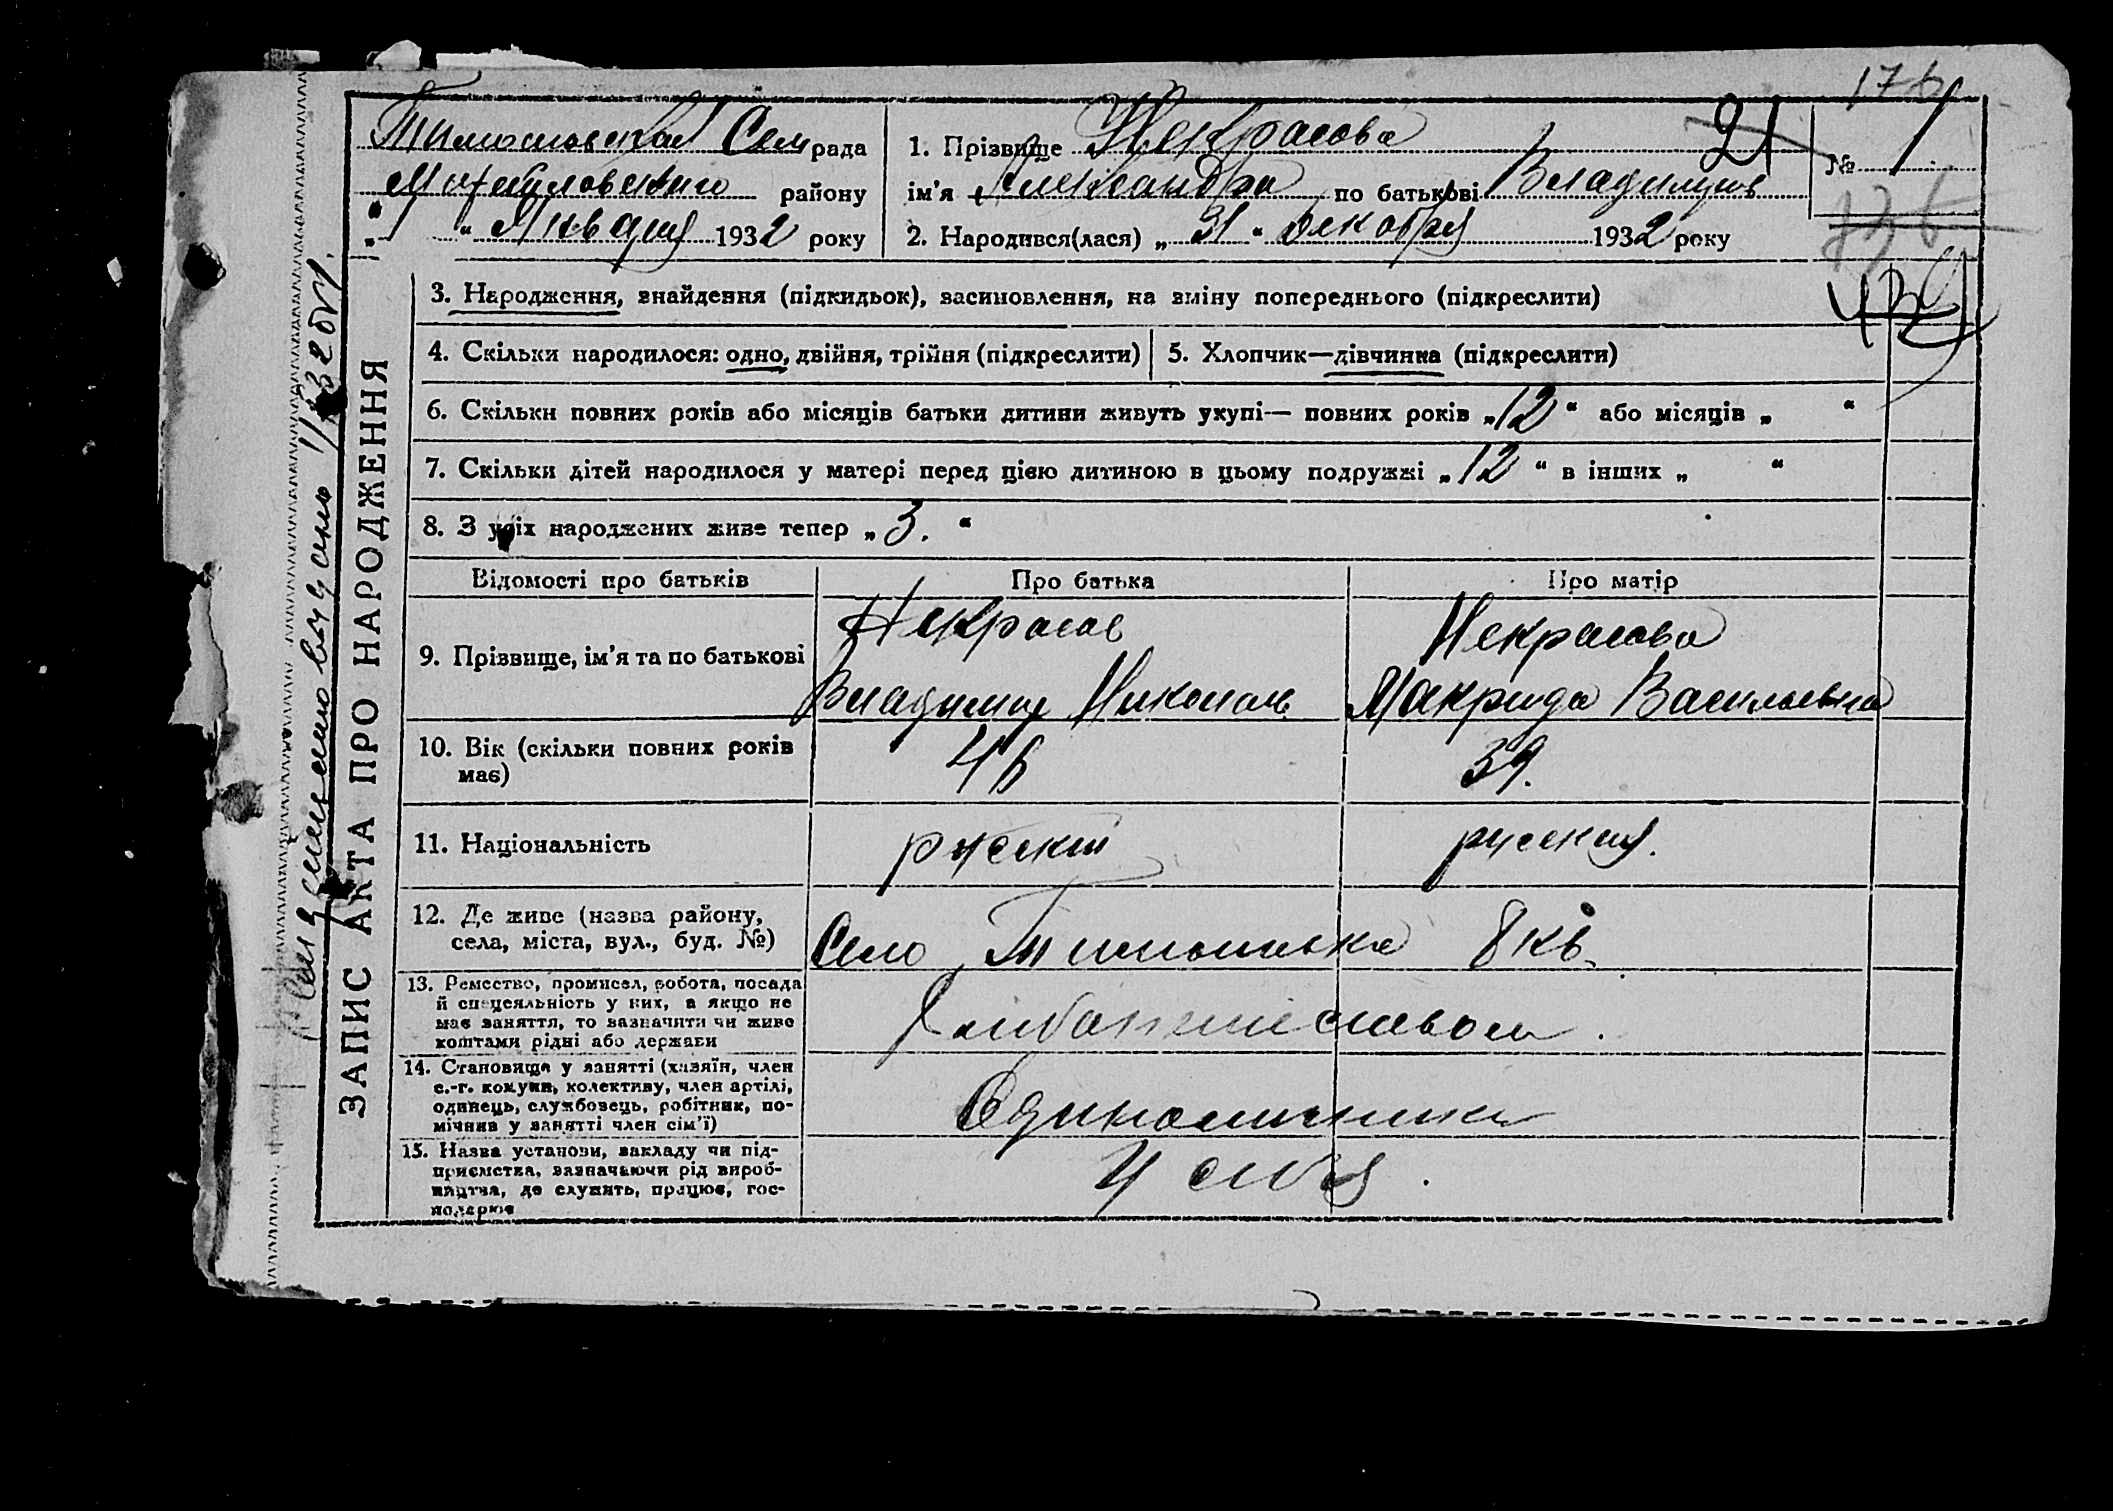 176
Сел рада
району
" 1 " Января 1932 року
1. Прізвище Некрасова
21
№ 1
ім'я Александра по батькові Владимир
2. Народився(лася) „ 31 " Декабря 1932 року
136
439
ЗАПИС АКТА ПРО НАРОДЖЕННЯ
3. Народження, знайдення (підкидьок), засиновлення, на зміну попереднього (підкреслити)
4. Скільки народилося: одно, двійня, трійня (підкреслити)
5. Хлопчик—дівчинка (підкреслити)
6. Скільки повних років або місяців батьки дитини живуть укупі— повних років „ 12 " або місяців „ "
7. Скільки дітей народилося у матері перед цією дитиною в цьому подружжі „ 12 " в інших „ "
8. З усіх народжених живе тепер „ 3. "
Відомості про батьків
Про батька
Про матір
9. Прізвище, ім'я та по батькові
Некрасов
Владимир Николаев
Некрасова
Макрида Васильевна
10. Вік (скільки повних років
має)
46
39.
11. Національність
русский
русская.
12. Де живе (назва району,
села, міста, вул., буд. №)
Село Тимошовка 8 кв.
13. Ремество, промисел, робота, посада
й спецеяльність у них, а якщо не
має заняття, то зазначити чи живе
коштами рідні або держави
Хлибопашеством.
14. Становище у занятті (хазяїн, член
с.-г. комуни, колективу, член артілі,
одинець, службовець, робітник, по-
мічник у занятті член сім'ї)
Одиноличники
15. Назва установи, закладу чи під-
приємства, зазначаючи рід вироб-
ництва, де служить, працює, гос-
подарює
У себя.